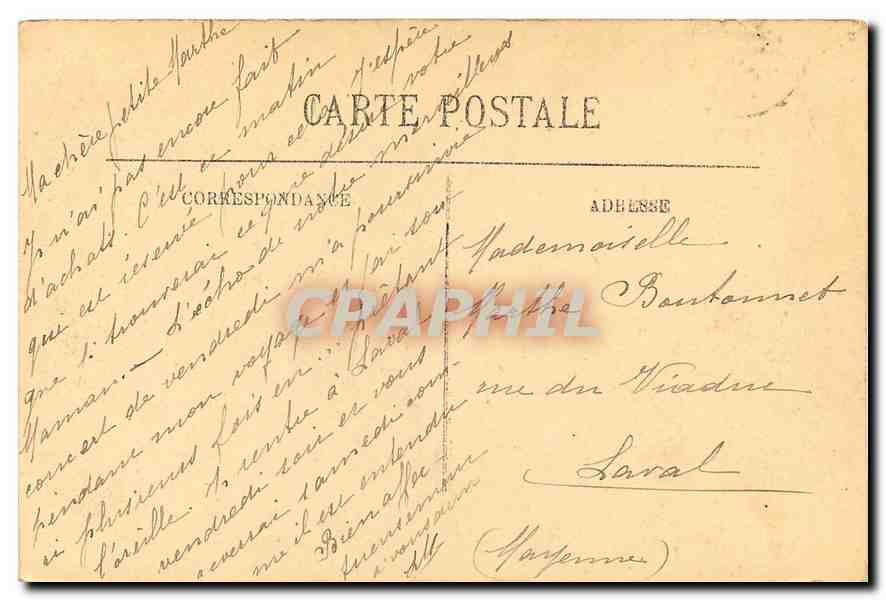 CARTE POSTALE
CORRESPONDANCE
ADRESSE
Ma chère petite Marthe
Je n'ai pas encore fait
d'achats. C'est ce matin
qui est réservé pour cela. J'espère
que je trouverai ce que désire votre
Maman. - L'écho de notre merveilleux
concert de vendredi m'a poursuivie
pendant mon voyage et j'ai sou
ri plusieurs fois en prêtant
l'oreille. Je rentre à Laval
vendredi soir et vous
reverrai samedi com
me il est entendu
Bien affec
tueusement
à vous
Mademoiselle
Marthe Boutonnet
rue du Viaduc
Laval
(Mayenne)
CPAPHIL